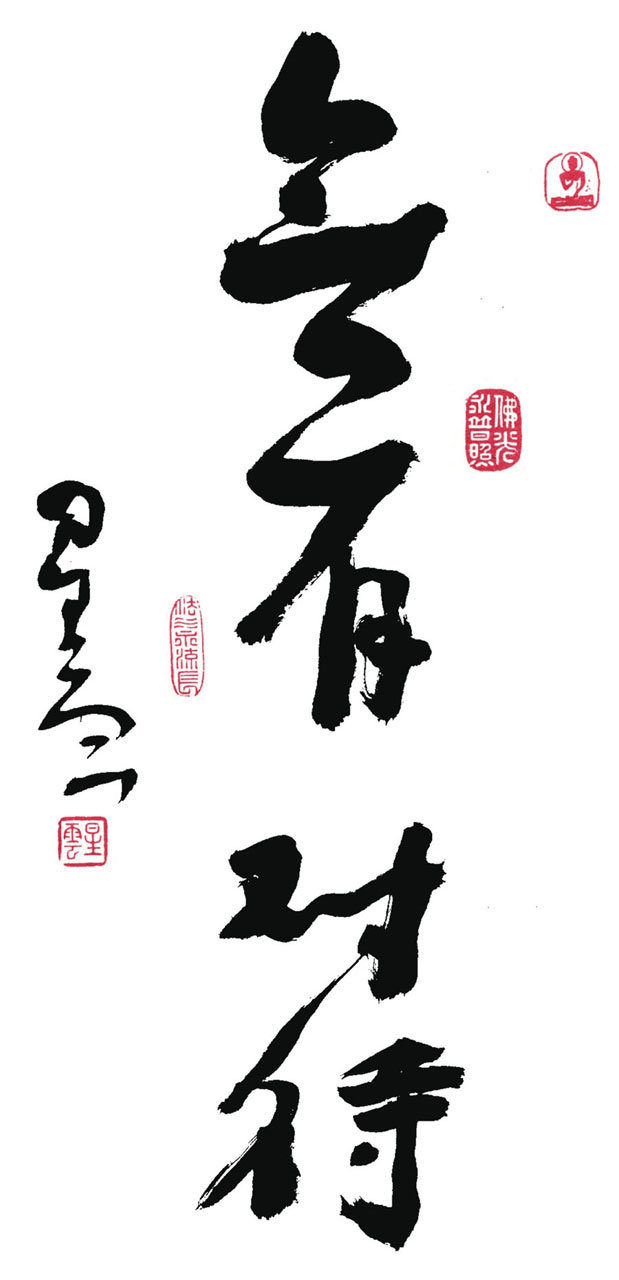 佛光永普照
無有對待
法水永流長
星雲
星雲